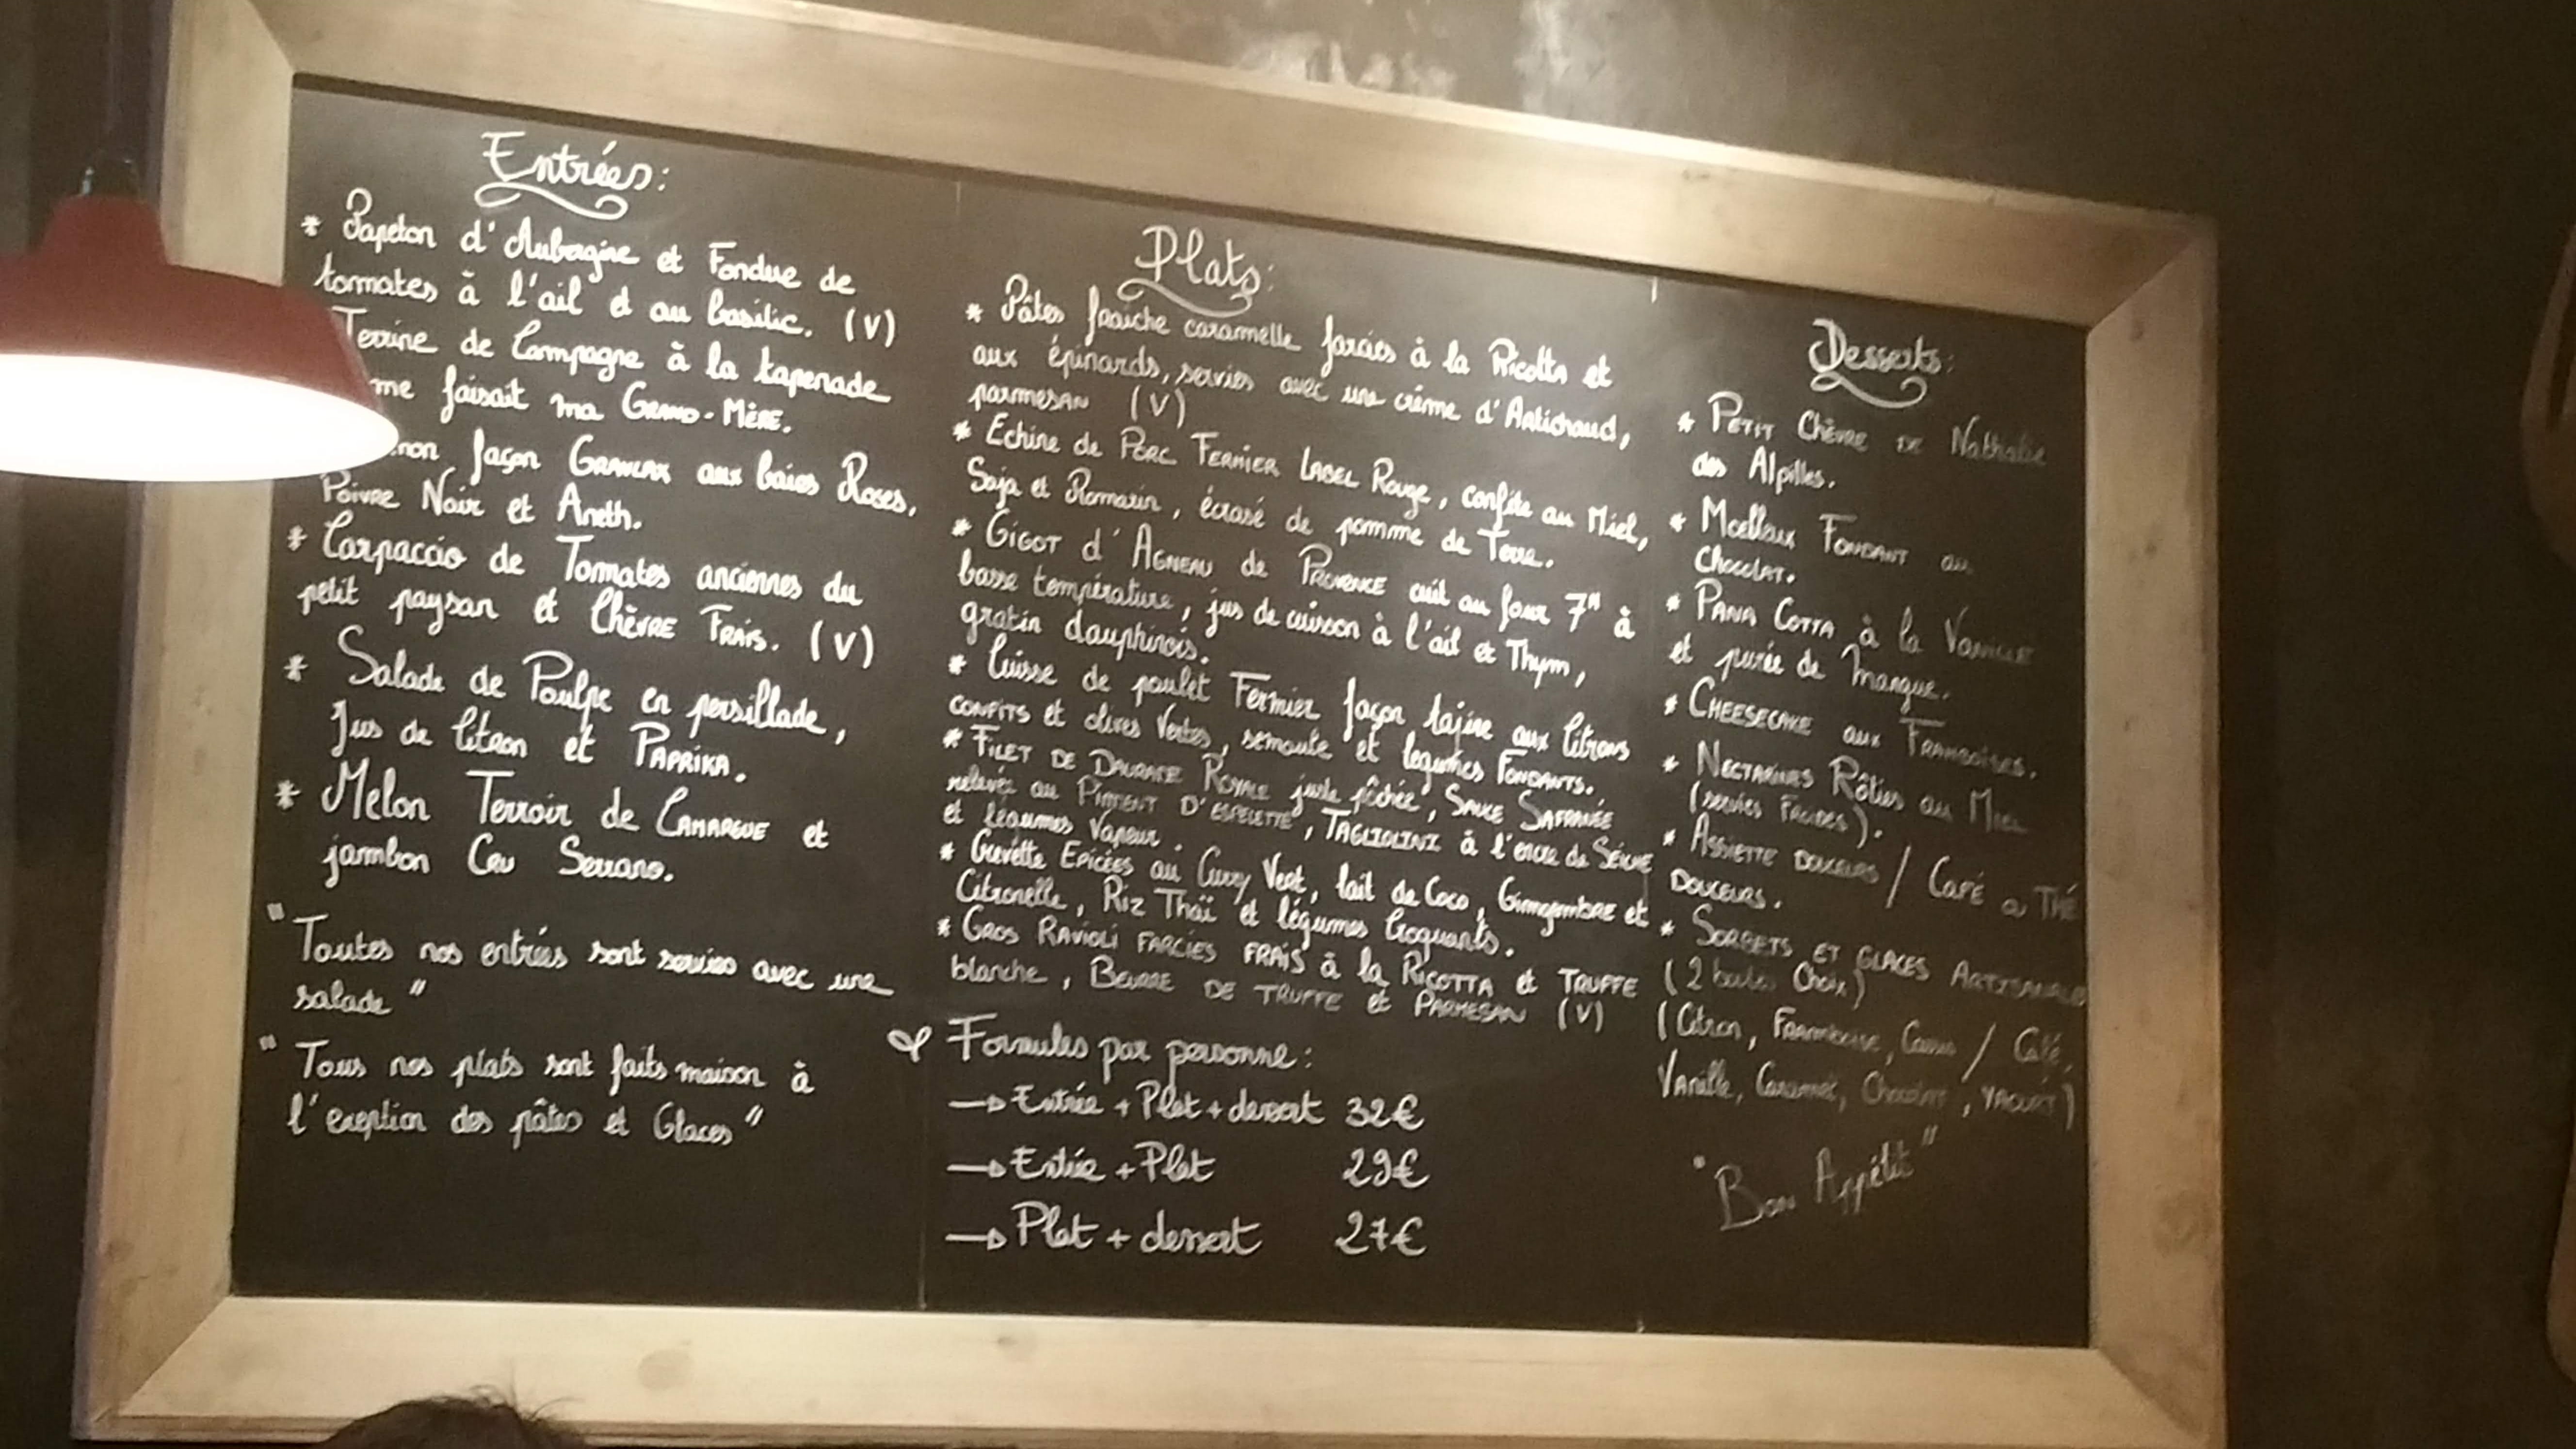 Entrées:
* Papeton d'Aubergine et Fondue de
tomates à l'ail et au basilic. (V)
Terrine de Campagne à la tapenade
me faisait ma GRAND-MÈRE.
façon GRAVLAX aux baies Roses,
Poivre Noir et Aneth.
* Carpaccio de Tomates anciennes du
petit paysan et Chèvre Frais. (V)
* Salade de Poulpe en persillade,
Jus de Citron et PAPRIKA.
* Melon Terroir de CAMARGUE et
jambon Cru Serrano.
"Toutes nos entrées sont servies avec une
salade"
"Tous nos plats sont faits maison à
l'exeption des pâtes et Glaces"
Plats:
* Pâtes fraiche caramelle farcies à la Ricotta et
aux épinards, servies avec une crème d'Artichaud,
parmesan (V)
* Echine de Porc FERMIER LABEL Rouge, confite au Miel,
Soja et Romarin, écrasé de pomme de Terre.
* GIGOT d'AGNEAU de PROVENCE cuit au four 7H à
basse température, jus de cuisson à l'ail et Thym,
gratin dauphinois.
* Cuisse de poulet Fermier façon tajine aux Citrons
CONFITS et olives Vertes, semoule et legumes FONDANTS.
* FILET DE DAURADE ROYALE juste pôchée, SAUCE SAFRANÉE
relevée au PIMENT D'ESPELETTE, TAGLIOLINI à l'encre de SÉICHE
et légumes Vapeur.
* Crevette EPICÉES au Curry Vert, lait de Coco, Gimgembre et
Citronelle, RIZ Thaï et légumes Croquants.
* GROS RAVIOLI FARCIES FRAIS à la RICOTTA et TRUFFE
blanche, BEURRE DE TRUFFE et PARMESAN (V)
Formules par personne:
→ Entrée + Plat + dessert 32€
→ Entrée + Plat 29€
→ Plat + dessert 27€
Desserts:
* PETIT Chèvre DE Nathalie
des Alpilles.
* Moelleux FONDANT au
CHOCOLAT.
* PANA COTTA à la VANILLE
et purée de Mangue.
* CHEESECAKE aux FRAMBOISES.
* NECTARINES Rôties au MIEL
(servies FROIDES).
* ASSIETTE DOUCEURS / CAFÉ ou THÉ
DOUCEURS.
* SORBETS ET GLACES ARTISANALES
(2 boules Choix)
(Citron, FRAMBOISE, Cassis / Café,
Vanille, Caramel, Chocolat, YAOURT)
"Bon Appétit"